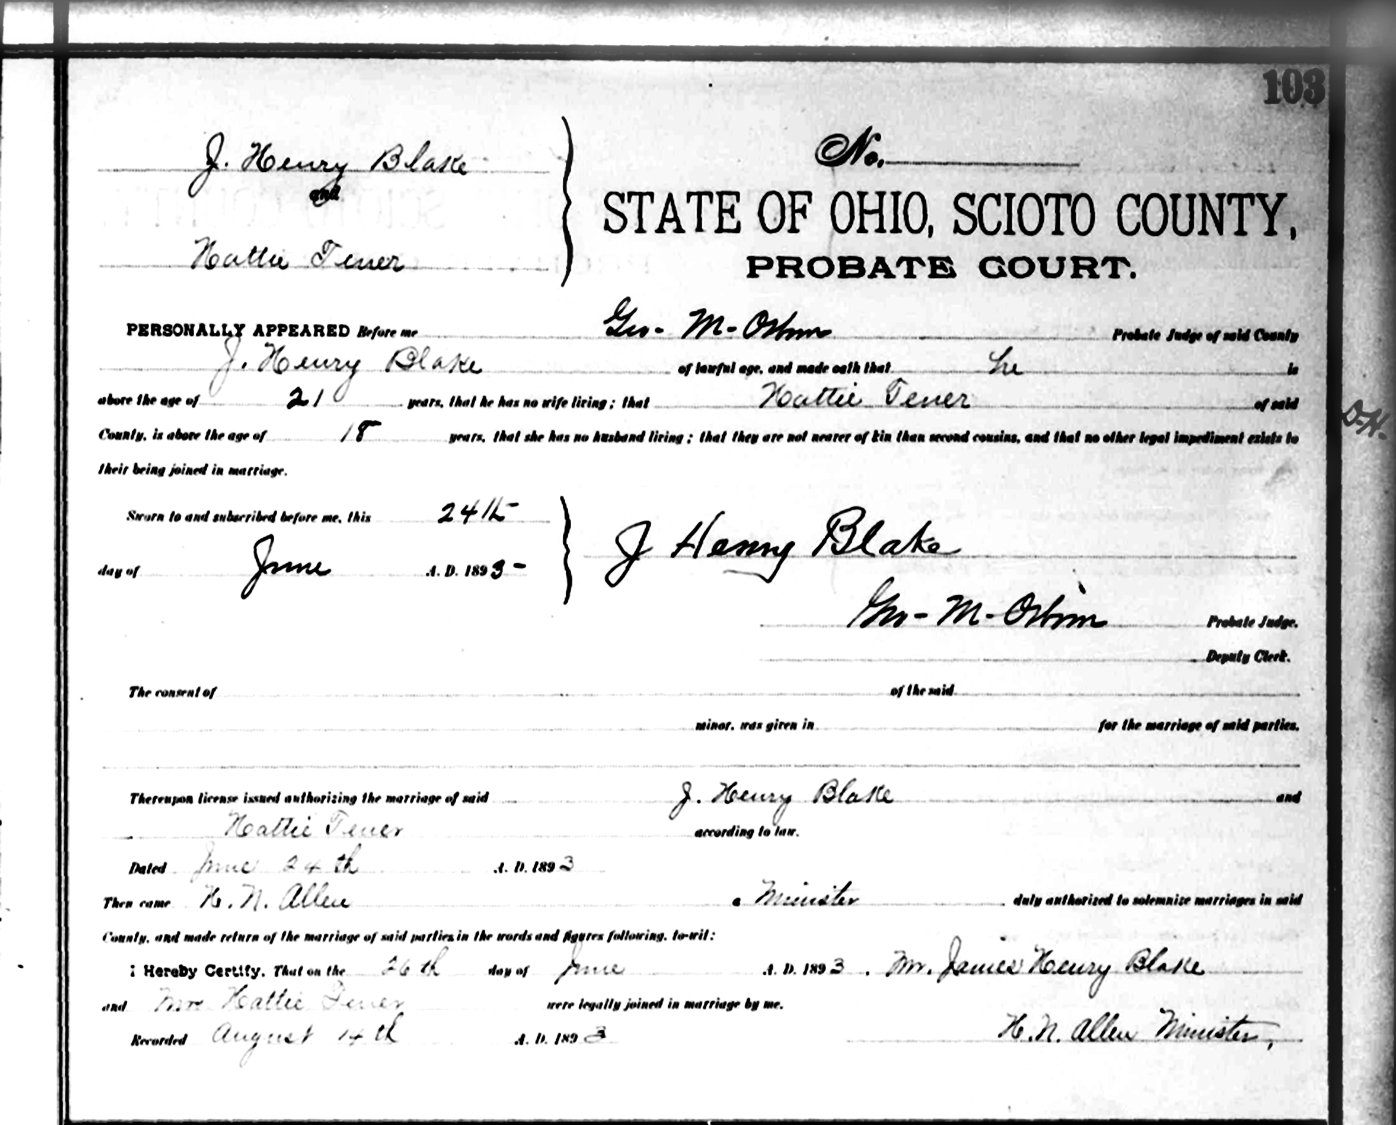 103
J. Henry Blake
and
Hattie Tener
No.
STATE OF OHIO, SCIOTO COUNTY,
PROBATE COURT.
PERSONALLY APPEARED Before me Geo- M- Osborn Probate Judge of said County
J. Henry Blake of lawful age, and made oath that he is
above the age of 21 years, that he has no wife living; that Hattie Tener of said
County, is above the age of 18 years, that she has no husband living; that they are not nearer of kin than second cousins, and that no other legal impediment exists to
their being joined in marriage.
Sworn to and subscribed before me, this 24th
day of June A. D. 1893-
J Henry Blake
Geo- M- Osborn Probate Judge.
Deputy Clerk.
The consent of of the said
minor, was given in for the marriage of said parties.
Thereupon license issued authorizing the marriage of said J. Henry Blake and
Hattie Tener according to law.
Dated June 24th A. D. 1893
Then came H. N. Allen a Minister duly authorized to solemnize marriages in said
County, and made return of the marriage of said parties in the words and figures following, to-wit:
I Hereby Certify, That on the 26th day of June A. D. 1893, Mr. James Henry Blake
and Hattie Tener were legally joined in marriage by me.
Recorded August 14th A. D. 1893 H. N. Allen Minister,